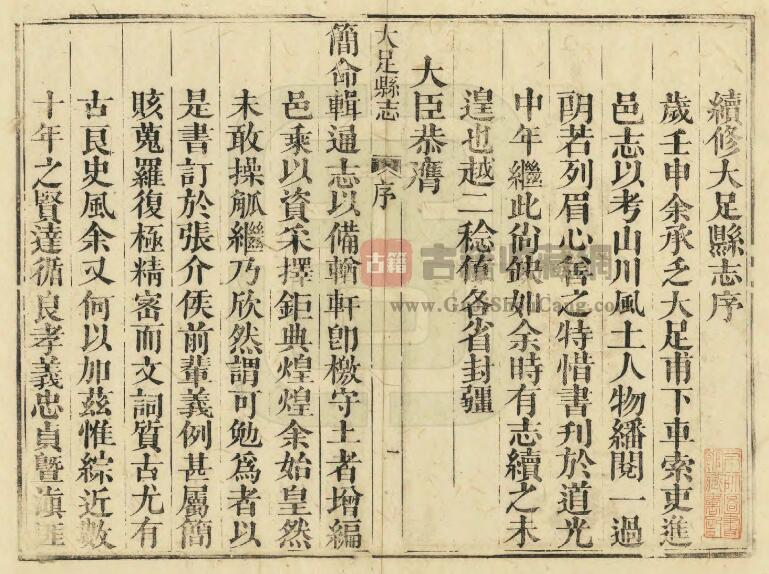 續修大足縣志序
歲壬申余承乏大足甫下車索吏進
邑志以考山川風土人物繙閱一過
朗若列眉心窃之特惜書刊於道光
中年繼此尚缺如余時有志續之未
遑也越二稔值各省封疆
大臣恭膺
大足縣志 序
簡命輯通志以備輶軒卽檄守土者增編
邑乘以資采擇鉅典煌煌余始皇然
未敢操觚繼乃欣然謂可勉為者以
是書訂於張介侯前輩義例甚屬簡
賅蒐羅復極精密而文詞質古尤有
古良史風余又何以加茲惟綜近數
十年之賢達循良孝義忠貞暨
古籍
www.GuJiShuCang.com